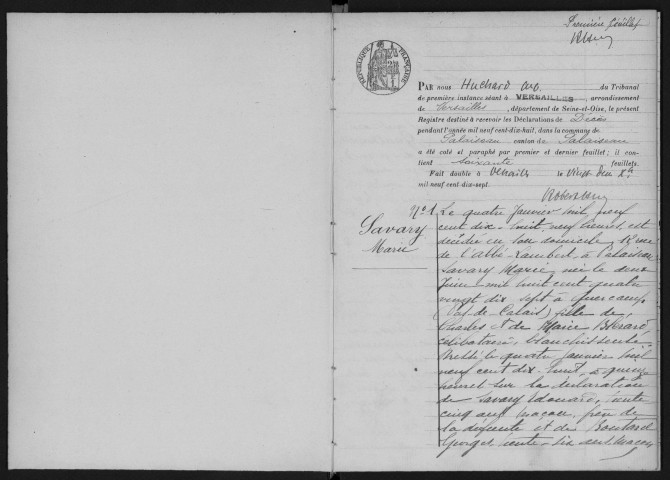 Premier feuillet
RÉPUBLIQUE FRANÇAISE
PAR nous Huchard du Tribunal
de première instance séant à VERSAILLES, arrondissement
de Versailles, département de Seine-et-Oise, le présent
Registre destiné à recevoir les Déclarations de Décès
pendant l'année mil neuf cent-dix-huit, dans la commune de
Palaiseau canton de Palaiseau
a été coté et paraphé par premier et dernier feuillet; il con-
tient soixante feuillets.
Fait double à Versailles le vingt deux Xbre
mil neuf cent dix-sept.
N° 1
Savary
Marie
Le quatre Janvier mil neuf
cent dix-huit neuf heures, est
décédée en son domicile, rue
de l'abbé-Lambert à Palaiseau
Savary Marie née le deux
Juin mil huit cent quatre
vingt dix sept à
(Pas-de-Calais) fille de
Charles et de Marie
célibataire, blanchisseuse
Dressé le quatre Janvier mil
neuf cent dix-huit, à
heures sur la déclaration
de Savary Edouard, trente
cinq ans maçon, de
la défunte et de
Georges trente-six ans maçon